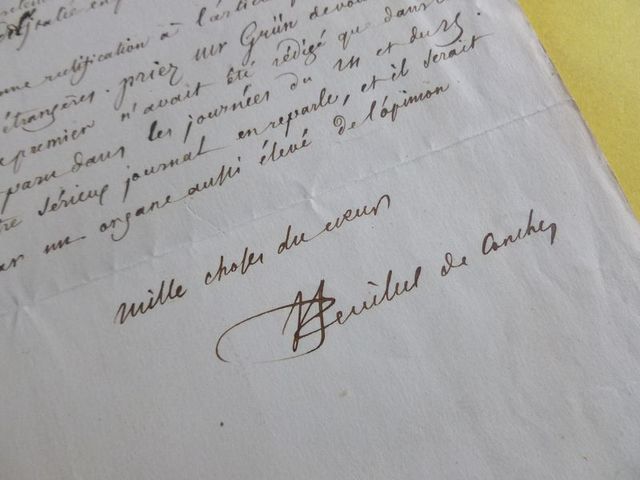 une rectification à l'article
étrangères. priez Mr Grün de vou
premier n'avait été rédigé que dans
paru dans les journées du 24 et du 25
re sérieux journal en reparle, et il serait
ar un organe aussi élevé de l'opinion
mille choses du cœur
Feuillet de Conches